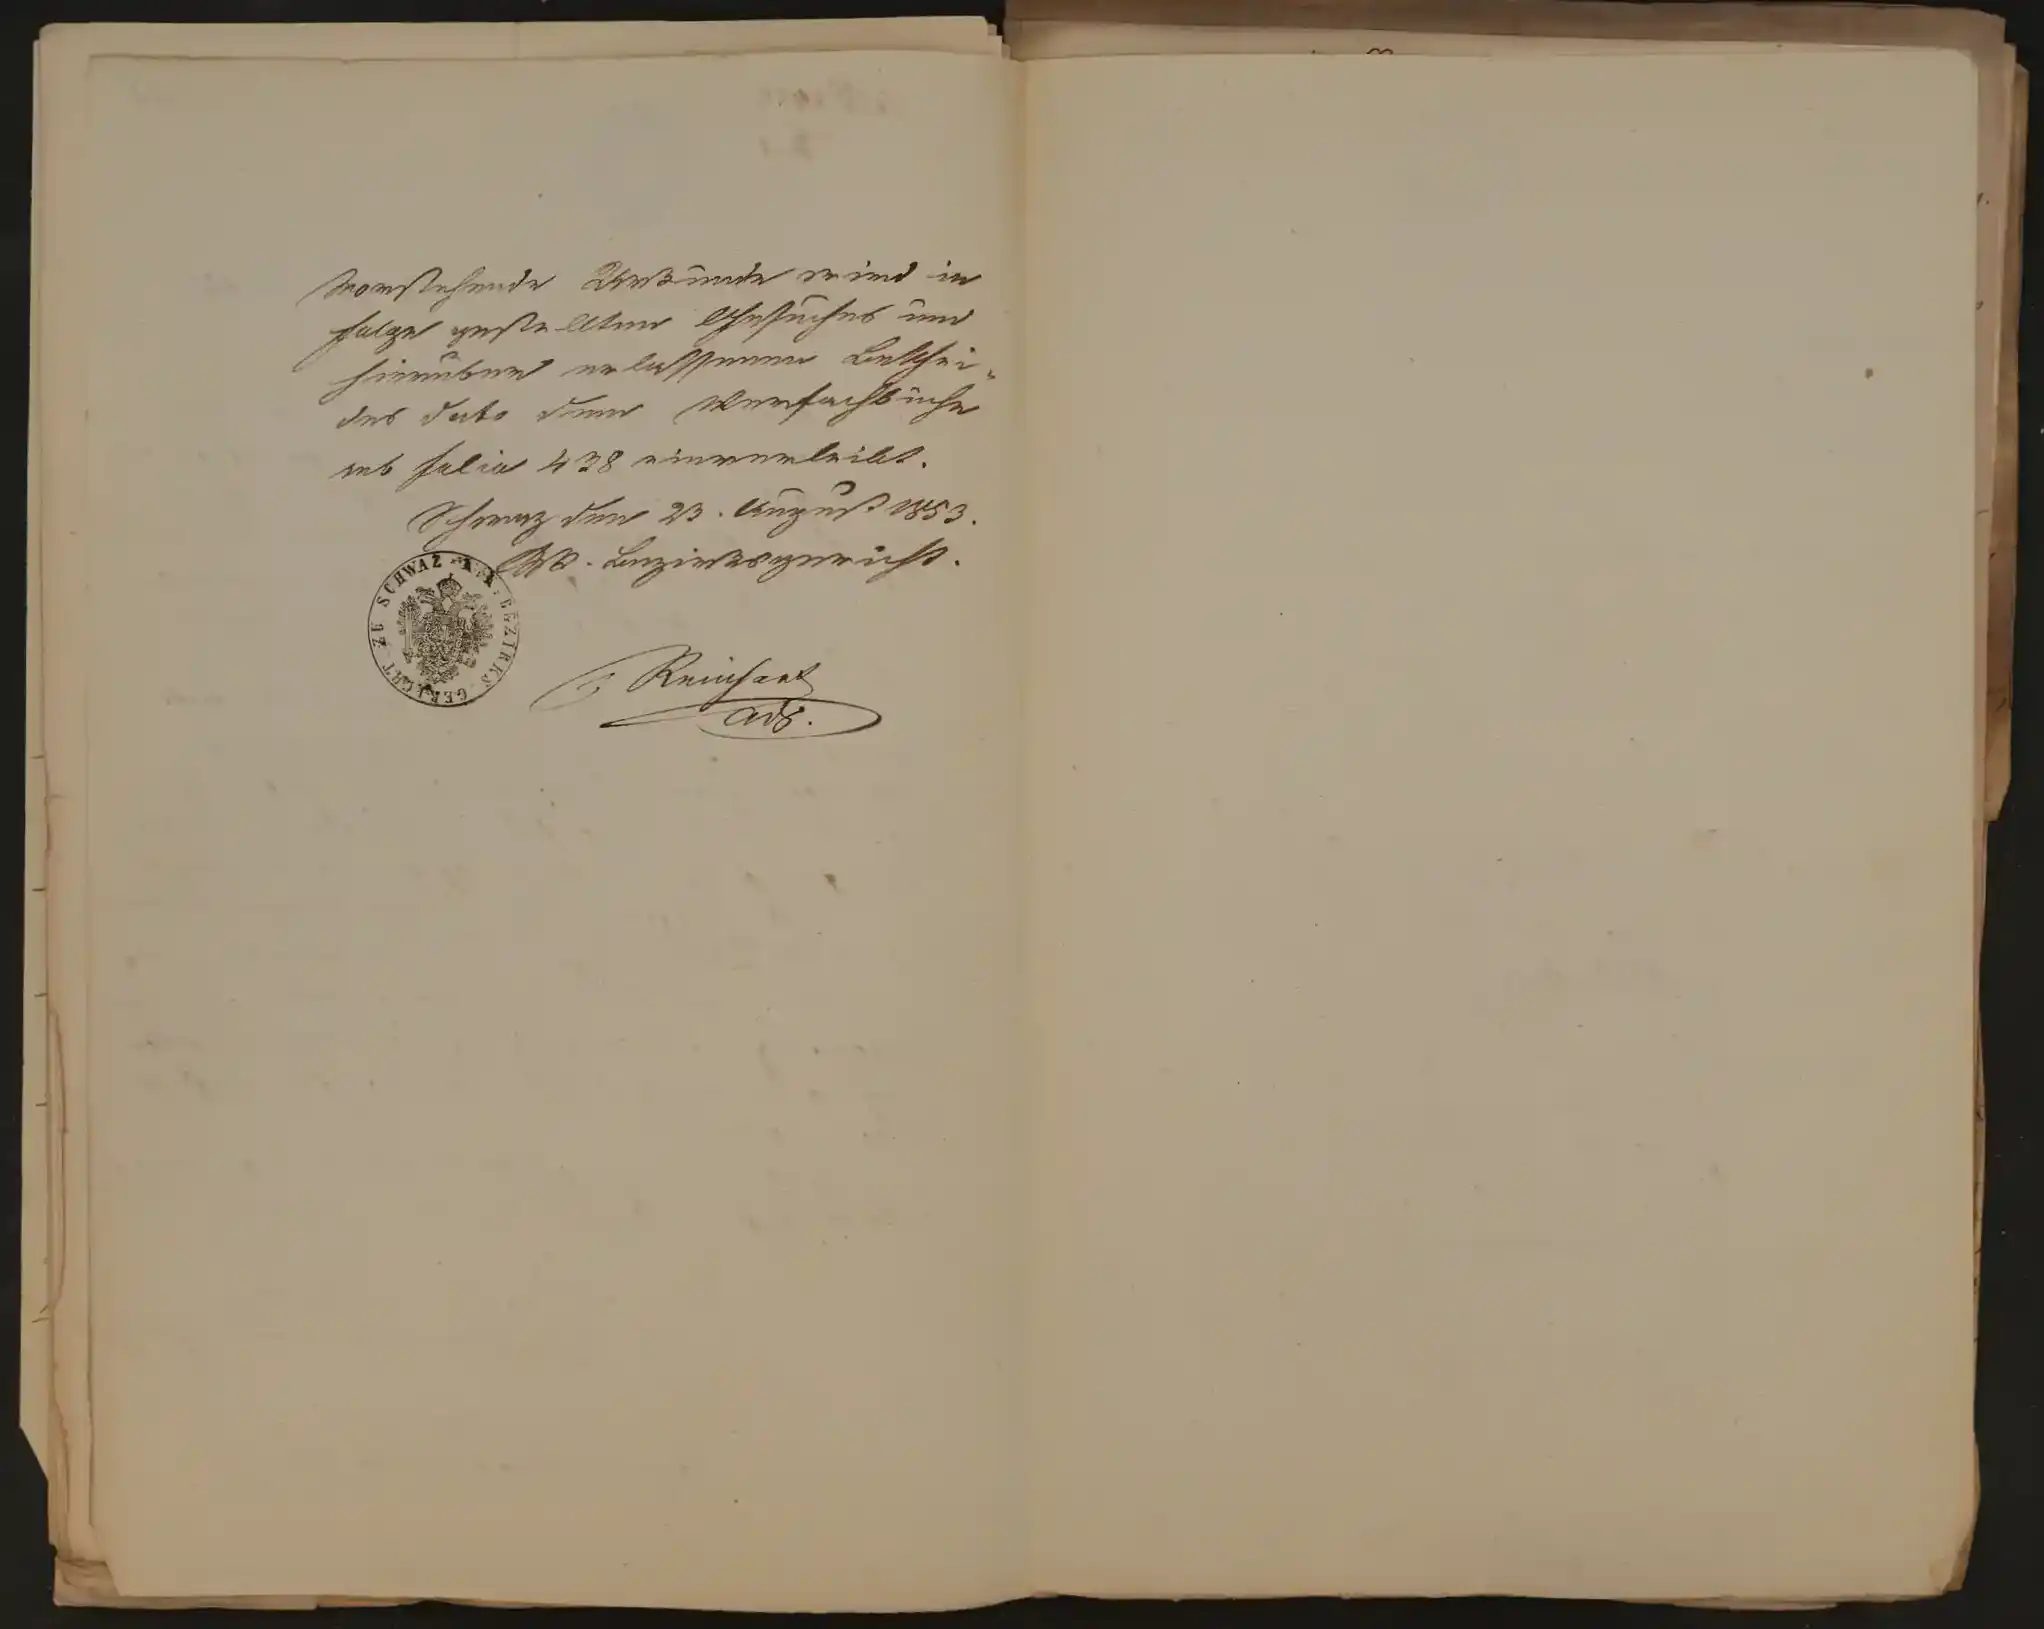 Vorstehende Urkunde wird in
Folge gestellten Gesuches und
hierüber erlassenen Beschei-
des dato dem Verfachbuche
sub folio 438 einverleibt.
Schwaz den 23. August 1853.
KK. Bezirksgericht.
K. K. BEZIRKS GERICHT ZU SCHWAZ
Reinhart
Ads.